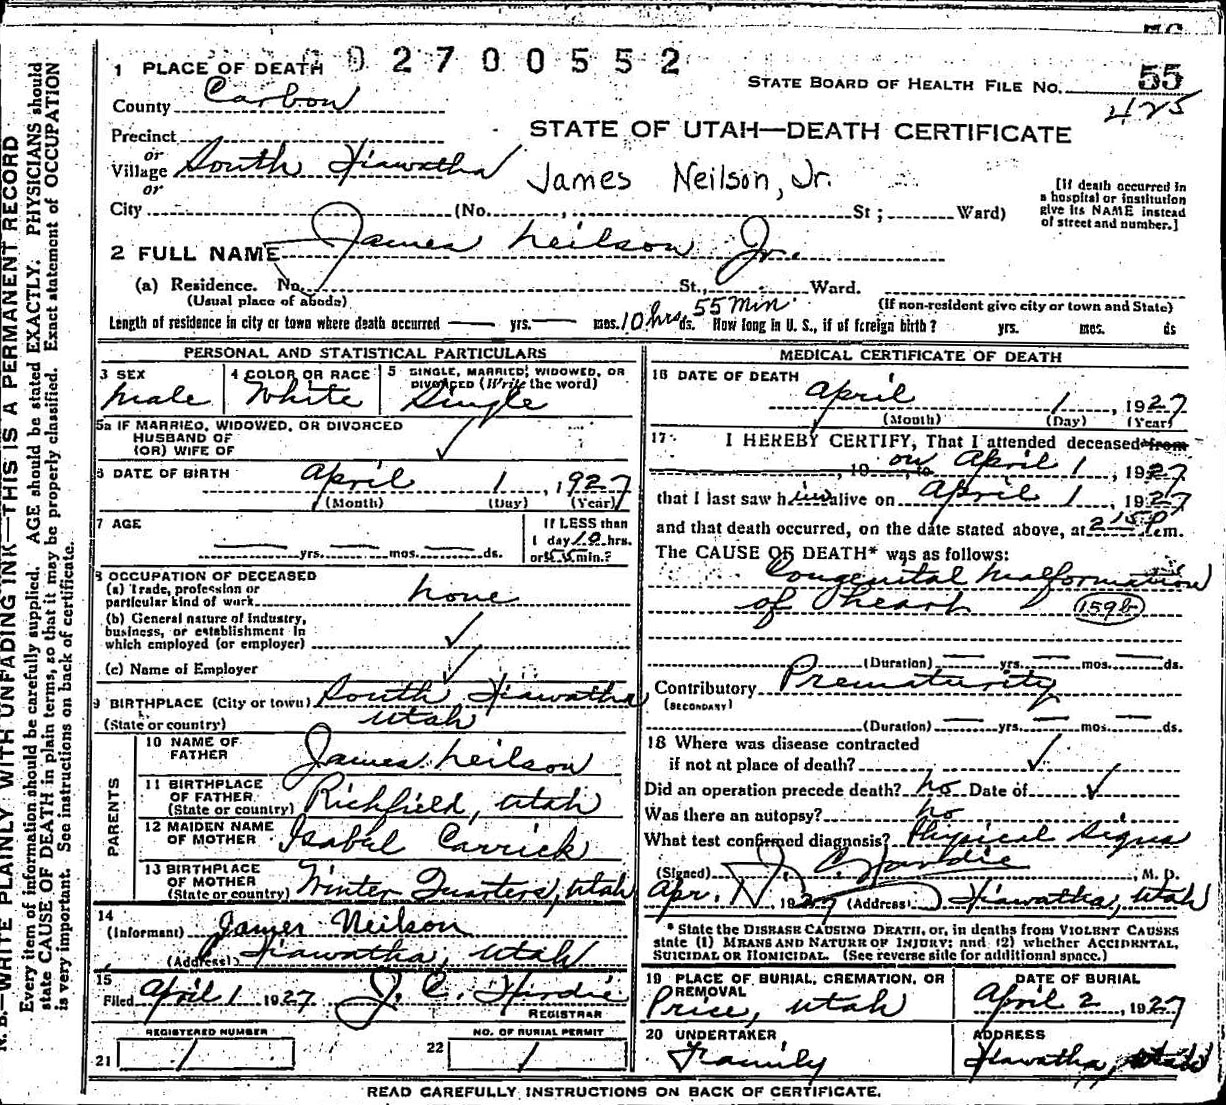 92700552
1 PLACE OF DEATH
STATE BOARD OF HEALTH FILE NO. 55
425
County Carbon
Precinct
STATE OF UTAH—DEATH CERTIFICATE
or
Village South Hiawatha
James Neilson, Jr.
or
[If death occurred in a hospital or institution give its NAME instead of street and number.]
City (No. , St; Ward)
2 FULL NAME James Neilson Jr.
(a) Residence. No. St., Ward.
(Usual place of abode) (If non-resident give city or town and State)
Length of residence in city or town where death occurred — yrs. — mos. 10 hrs ds. 55 min. How long in U. S., if of foreign birth? yrs. mos. ds
PERSONAL AND STATISTICAL PARTICULARS
3 SEX male
4 COLOR OR RACE White
5 SINGLE, MARRIED, WIDOWED, OR DIVORCED (Write the word) Single
5a IF MARRIED, WIDOWED, OR DIVORCED
HUSBAND OF
(OR) WIFE OF
6 DATE OF BIRTH April 1, 1927
(Month) (Day) (Year)
7 AGE — yrs. — mos. — ds.
If LESS than
1 day 10 hrs.
or 55 min.?
8 OCCUPATION OF DECEASED
(a) Trade, profession or
particular kind of work none
(b) General nature of industry,
business, or establishment in
which employed (or employer)
(c) Name of Employer
9 BIRTHPLACE (City or town) South Hiawatha
(State or country) Utah
PARENTS
10 NAME OF
FATHER James Neilson
11 BIRTHPLACE
OF FATHER
(State or country) Richfield, Utah
12 MAIDEN NAME
OF MOTHER Isabel Carrick
13 BIRTHPLACE
OF MOTHER
(State or country) Winter Quarters, Utah
14
(Informant) James Neilson
(Address) Hiawatha, Utah
15
Filed April 1 1927 J. C. Hardie
REGISTRAR
REGISTERED NUMBER
21 1
NO. OF BURIAL PERMIT
22 1
MEDICAL CERTIFICATE OF DEATH
16 DATE OF DEATH
April 1, 1927
(Month) (Day) (Year)
17 I HEREBY CERTIFY, That I attended deceased from
, 19 on to April 1, 1927
that I last saw him alive on April 1, 1927
and that death occurred, on the date stated above, at 2 15 P.m.
The CAUSE OF DEATH* was as follows:
Congenital Malformation
of heart 159b
(Duration) — yrs. — mos. — ds.
Contributory Prematurity
(SECONDARY)
(Duration) — yrs. — mos. — ds.
18 Where was disease contracted
if not at place of death?
Did an operation precede death? no Date of
Was there an autopsy? no
What test confirmed diagnosis? Physical Signs
(Signed) J. C. Hardie, M. D.
Apr. 1, 1927 (Address) Hiawatha, Utah
* State the DISEASE CAUSING DEATH, or, in deaths from VIOLENT CAUSES
state (1) MEANS AND NATURE OF INJURY; and (2) whether ACCIDENTAL,
SUICIDAL OR HOMICIDAL. (See reverse side for additional space.)
19 PLACE OF BURIAL, CREMATION, OR
REMOVAL
Price, Utah
DATE OF BURIAL
April 2, 1927
20 UNDERTAKER
Family
ADDRESS
Hiawatha, Utah
READ CAREFULLY INSTRUCTIONS ON BACK OF CERTIFICATE.
N. B.—WRITE PLAINLY WITH UNFADING INK—THIS IS A PERMANENT RECORD
Every item of information should be carefully supplied. AGE should be stated EXACTLY. PHYSICIANS should
state CAUSE OF DEATH in plain terms, so that it may be properly classified. Exact statement of OCCUPATION
is very important. See instructions on back of certificate.